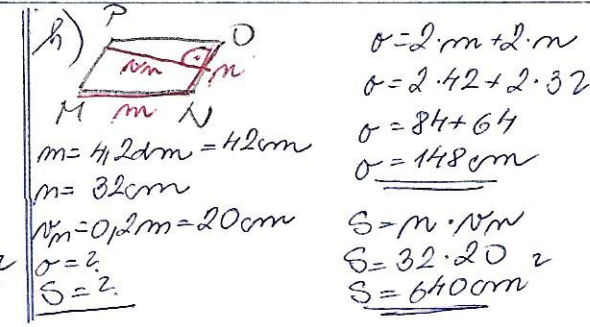 h)
P
O
vn
n
M
m
N
m = 4,2dm = 42cm
n = 32cm
vn = 0,2m = 20cm
o = ?
S = ?
o = 2·m + 2·n
o = 2·42 + 2·32
o = 84 + 64
o = 148cm
S = n·vn
S = 32·20
S = 640cm²